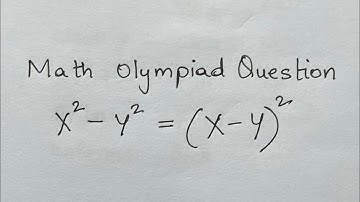 Math Olympiad Question
x² - y² = (x-y)²